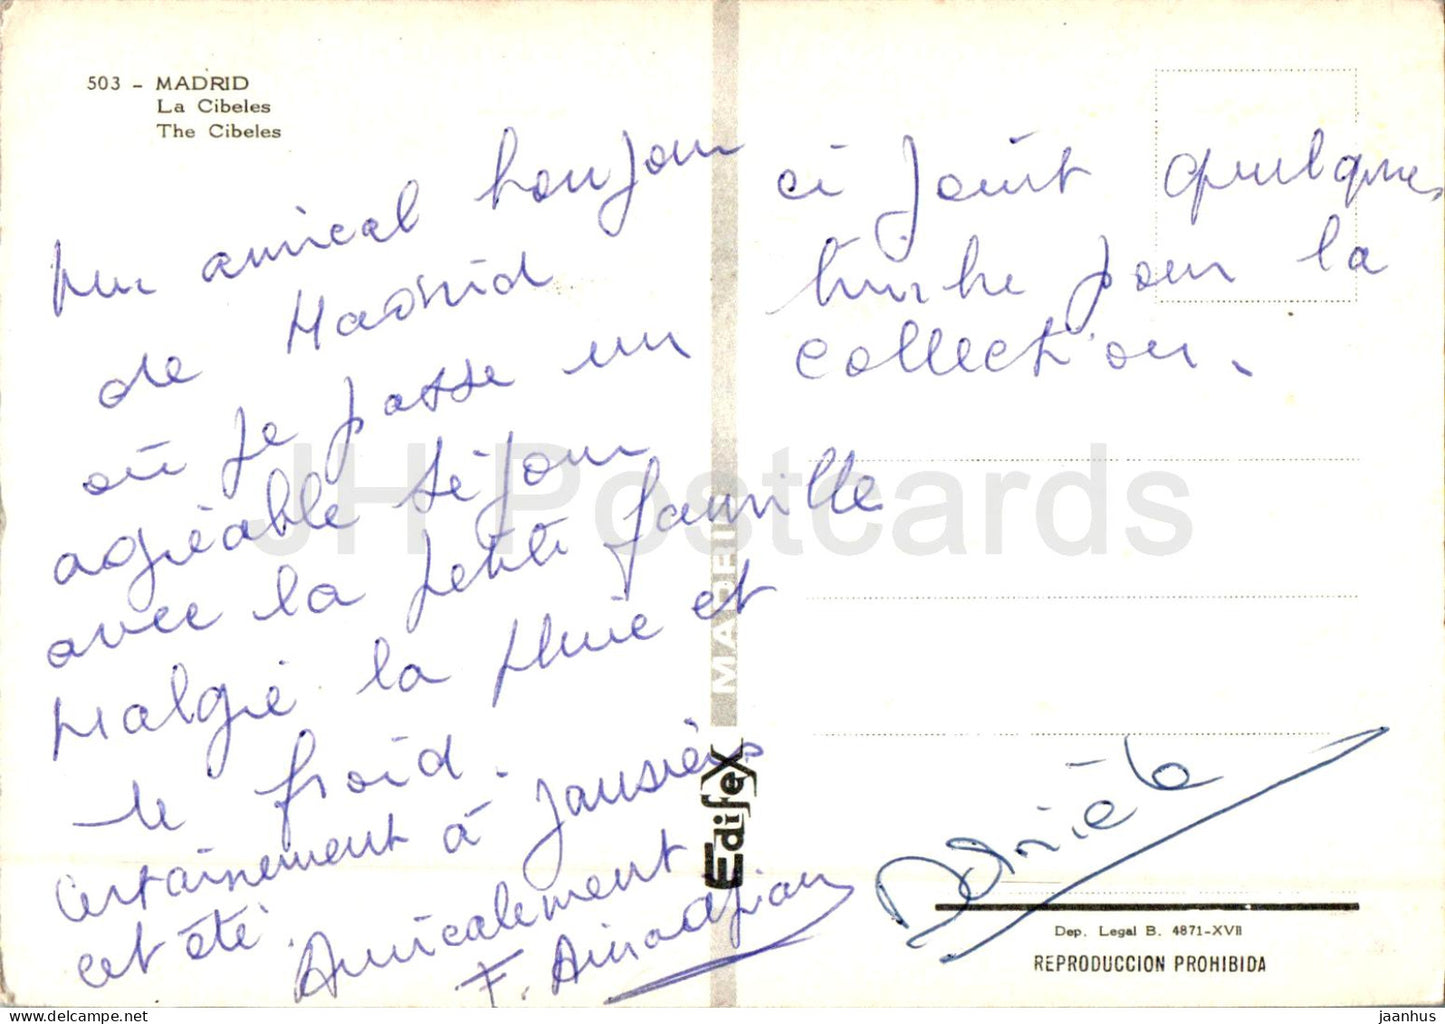 503 - MADRID
La Cibeles
The Cibeles
un amical bonjour
de Madrid
où je passe un
agréable séjour
avec la petite famille
Malgré la pluie et
le froid.
Certainement à Jausiers
cet été.
Amicalement
F.
ci joint quelques
timbre pour la
collection.
MADRID
EdifeX
Dep. Legal B. 4871-XVII
REPRODUCCION PROHIBIDA
JH Postcards
https://www.delcampe.net/en/store/
jaanhus